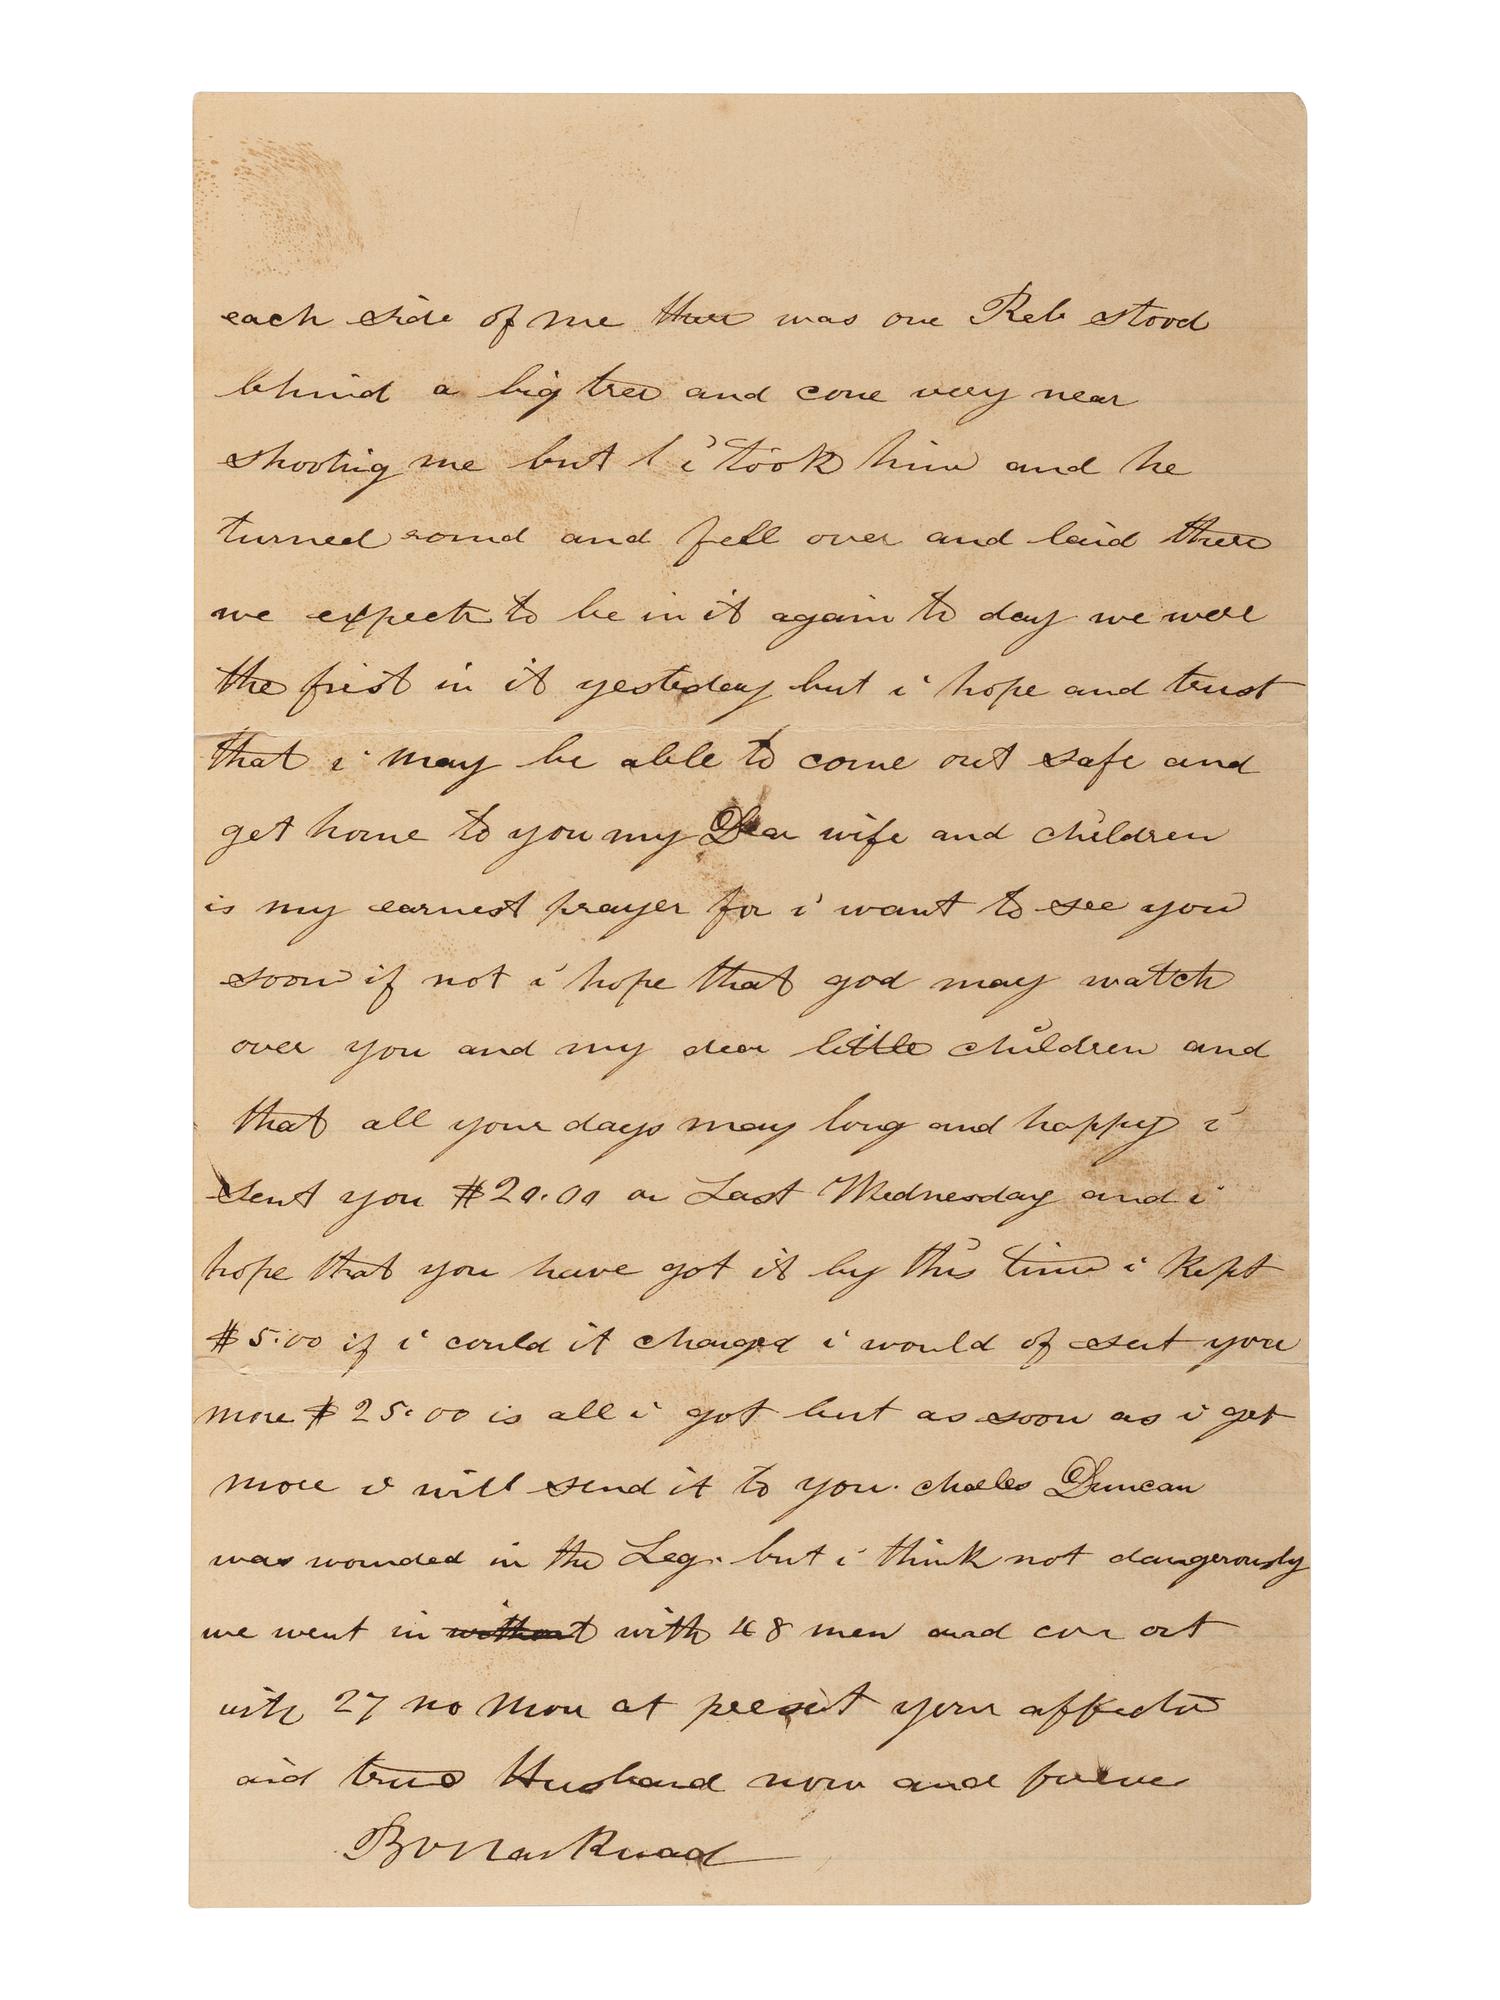 each side of me there was one Reb stood
behind a big tree and come very near
shooting me but i took him and he
turned round and fell over and laid there
we expect to be in it again to day we were
the frist in it yesterday but i hope and trust
that i may be able to come out safe and
get home to you my Dear wife and children
is my earnest prayer for i want to see you
soon if not i hope that god may watch
over you and my dear little children and
that all your days may long and happy i
sent you $20.00 on Last Wednesday and i
hope that you have got it by this time i kept
$5.00 if i could it changed i would of sent you
more $25.00 is all i got but as soon as i get
more i will send it to you. charles Duncan
was wounded in the Leg. but i think not dangerously
we went in without with 48 men and com out
with 27 no more at present your affectu
and true Husband now and forever